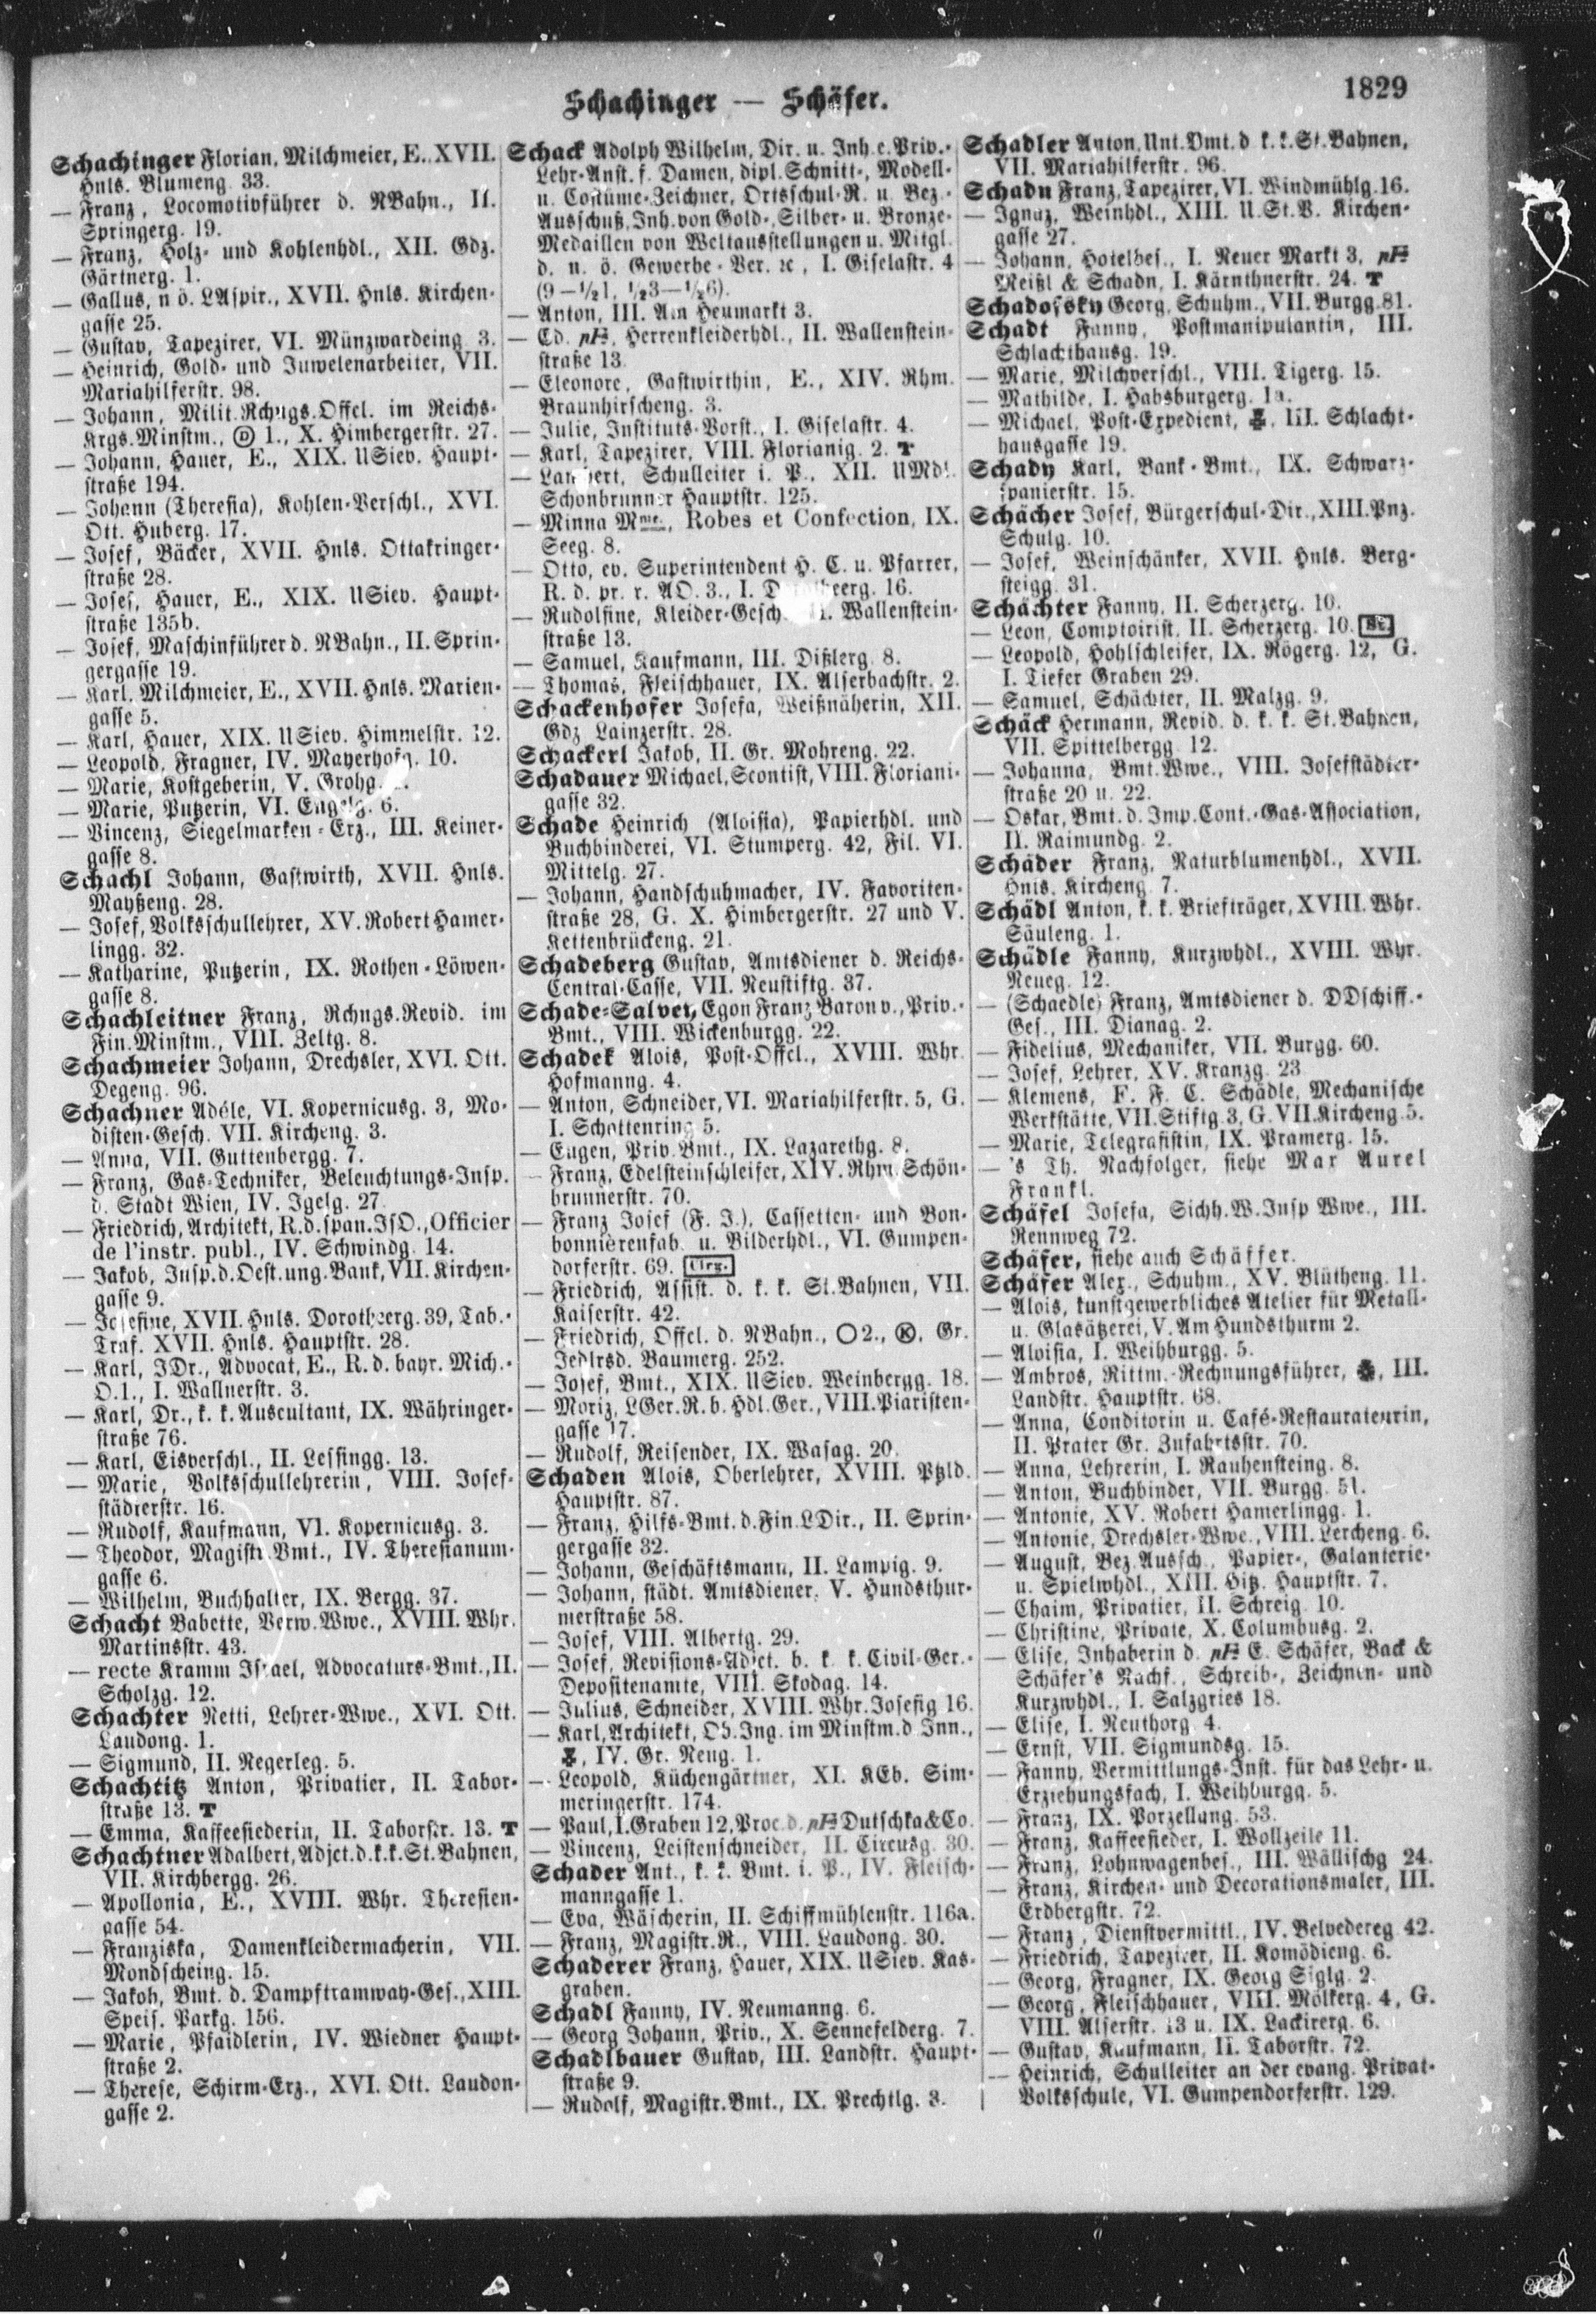 Schachinger — Schäfer.
1829
Schachinger Florian, Milchmeier, E., XVII.
Hnls. Blumeng. 33.
— Franz, Locomotivführer d. NBahn., II.
Springerg. 19.
— Franz, Holz- und Kohlenhdl., XII. Gdz.
Gärtnerg. 1.
— Gallus, n ö. LAspir., XVII. Hnls. Kirchen-
gasse 25.
— Gustav, Tapezirer, VI. Münzwardeing 3.
— Heinrich, Gold- und Juwelenarbeiter, VII.
Mariahilferstr. 98.
— Johann, Milit.Rchngs.Offcl. im Reichs-
Krgs.Minstm., Ⓓ 1., X. Himbergerstr. 27.
— Johann, Hauer, E., XIX. USiev. Haupt-
straße 194.
— Johann (Theresia), Kohlen-Verschl., XVI.
Ott. Huberg. 17.
— Josef, Bäcker, XVII. Hnls. Ottakringer-
straße 28.
— Josef, Hauer, E., XIX. USiev. Haupt-
straße 135b.
— Josef, Maschinführer d. NBahn., II. Sprin-
gergasse 19.
— Karl, Milchmeier, E., XVII. Hnls. Marien-
gasse 5.
— Karl, Hauer, XIX. USiev. Himmelstr. 12.
— Leopold, Fragner, IV. Mayerhofg. 10.
— Marie, Kostgeberin, V. Grohg.
— Marie, Putzerin, VI. Engelg. 6.
— Vincenz, Siegelmarken-Erz., III. Keiner-
gasse 8.
Schachl Johann, Gastwirth, XVII. Hnls.
Mayßeng. 28.
— Josef, Volksschullehrer, XV. Robert Hamer-
lingg. 32.
— Katharine, Putzerin, IX. Rothen-Löwen-
gasse 8.
Schachleitner Franz, Rchngs.Revid. im
Fin.Minstm., VIII. Zeltg. 8.
Schachmeier Johann, Drechsler, XVI. Ott.
Degeng. 96.
Schachner Adéle, VI. Kopernicusg. 3, Mo-
disten-Gesch. VII. Kircheng. 3.
— Anna, VII. Guttenbergg. 7.
— Franz, Gas-Techniker, Beleuchtungs-Insp.
d. Stadt Wien, IV. Igelg. 27.
— Friedrich, Architekt, R.d.span.IsO., Officier
de l'instr. publ., IV. Schwindg. 14.
— Jakob, Insp.d.Oest.ung.Bank, VII. Kirchen-
gasse 9.
— Josefine, XVII. Hnls. Dorotheerg. 39, Tab.-
Traf. XVII. Hnls. Hauptstr. 28.
— Karl, JDr., Advocat, E., R. d. bayr. Mich.-
O.1., I. Wallnerstr. 3.
— Karl, Dr., k. k. Auscultant, IX. Währinger-
straße 76.
— Karl, Eisverschl., II. Lessingg. 13.
— Marie, Volksschullehrerin, VIII. Josef-
städterstr. 16.
— Rudolf, Kaufmann, VI. Kopernicusg. 3.
— Theodor, Magistr.Bmt., IV. Theresianum-
gasse 6.
— Wilhelm, Buchhalter, IX. Bergg. 37.
Schacht Babette, Verw.Wwe., XVIII. Whr.
Martinsstr. 43.
— recte Kramm Israel, Advocaturs-Bmt., II.
Scholzg. 12.
Schachter Netti, Lehrer-Wwe., XVI. Ott.
Laudong. 1.
— Sigmund, II. Negerleg. 5.
Schachtitz Anton, Privatier, II. Tabor-
straße 13. T
— Emma, Kaffeesiederin, II. Taborstr. 13. T
Schachtner Adalbert, Adjct.d.k.k.St.Bahnen,
VII. Kirchbergg. 26.
— Apollonia, E., XVIII. Whr. Theresien-
gasse 54.
— Franziska, Damenkleidermacherin, VII.
Mondscheing. 15.
— Jakob, Bmt. d. Dampftramway-Ges., XIII.
Speis. Parkg. 156.
— Marie, Pfaidlerin, IV. Wiedner Haupt-
straße 2.
— Therese, Schirm-Erz., XVI. Ott. Laudon-
gasse 2.
Schack Adolph Wilhelm, Dir. u. Inh. e. Priv.-
Lehr-Anst. f. Damen, dipl. Schnitt-, Modell-
u. Costüme-Zeichner, Ortsschul-R. u. Bez.-
Ausschuß, Inh. von Gold-, Silber- u. Bronze-
Medaillen von Weltausstellungen u. Mitgl.
d. n. ö. Gewerbe-Ver. ꝛc, I. Giselastr. 4
(9—½1, ½3—½6).
— Anton, III. Am Heumarkt 3.
— Ed. pH, Herrenkleiderhdl., II. Wallenstein-
straße 13.
— Eleonore, Gastwirthin, E., XIV. Rhm.
Braunhirscheng. 3.
— Julie, Instituts-Vorst., I. Giselastr. 4.
— Karl, Tapezirer, VIII. Florianig. 2. T
— Lambert, Schulleiter i. P., XII. UMdl.
Schönbrunner Hauptstr. 125.
— Minna Mme., Robes et Confection, IX.
Seeg. 8.
— Otto, ev. Superintendent H. C. u. Pfarrer,
R. d. pr. r. AO. 3., I. Dorotheerg. 16.
— Rudolfine, Kleider-Gesch. II. Wallenstein-
straße 13.
— Samuel, Kaufmann, III. Dißlerg. 8.
— Thomas, Fleischhauer, IX. Alserbachstr. 2.
Schackenhofer Josefa, Weißnäherin, XII.
Gdz Lainzerstr. 28.
Schackerl Jakob, II. Gr. Mohreng. 22.
Schadauer Michael, Scontist, VIII. Floriani-
gasse 32.
Schade Heinrich (Aloisia), Papierhdl. und
Buchbinderei, VI. Stumperg. 42, Fil. VI.
Mittelg. 27.
— Johann, Handschuhmacher, IV. Favoriten-
straße 28, G. X. Himbergerstr. 27 und V.
Kettenbrückeng. 21.
Schadeberg Gustav, Amtsdiener d. Reichs-
Central-Casse, VII. Neustiftg. 37.
Schade-Salvey, Egon Franz Baron v., Priv.-
Bmt., VIII. Wickenburgg. 22.
Schadek Alois, Post-Offcl., XVIII. Whr.
Hofmanng. 4.
— Anton, Schneider, VI. Mariahilferstr. 5, G.
I. Schottenring 5.
— Eugen, Priv.Bmt., IX. Lazarethg. 8.
— Franz, Edelsteinschleifer, XIV. Rhm. Schön-
brunnerstr. 70.
— Franz Josef (F. J.), Cassetten- und Bon-
bonnièrenfab. u. Bilderhdl., VI. Gumpen-
dorferstr. 69. Clrg.
— Friedrich, Assist. d. k. k. St.Bahnen, VII.
Kaiserstr. 42.
— Friedrich, Offcl. d. NBahn., ◯2., Ⓚ, Gr.
Jedlrsd. Baumerg. 252.
— Josef, Bmt., XIX. USiev. Weinbergg. 18.
— Moriz, LGer.R. b. Hdl.Ger., VIII. Piaristen-
gasse 17.
— Rudolf, Reisender, IX. Wasag. 20.
Schaden Alois, Oberlehrer, XVIII. Ptzld.
Hauptstr. 87.
— Franz, Hilfs-Bmt. d. Fin.LDir., II. Sprin-
gergasse 32.
— Johann, Geschäftsmann, II. Lampig. 9.
— Johann, städt. Amtsdiener, V. Hundsthur-
merstraße 58.
— Josef, VIII. Albertg. 29.
— Josef, Revisions-Adjct. b. k. k. Civil-Ger.-
Depositenamte, VIII. Skodag. 14.
— Julius, Schneider, XVIII. Whr. Josefig 16.
— Karl, Architekt, Ob.Ing. im Minstm.d Inn.,
IV. Gr. Neug. 1.
— Leopold, Küchengärtner, XI. KEb. Sim-
meringerstr. 174.
— Paul, I. Graben 12, Proc. d. pH Dutschka & Co.
— Vincenz, Leistenschneider, II. Circusg. 30.
Schader Ant., k. k. Bmt. i. P., IV. Fleisch-
manngasse 1.
— Eva, Wäscherin, II. Schiffmühlenstr. 116a.
— Franz, Magistr.R., VIII. Laudong. 30.
Schaderer Franz, Hauer, XIX. USiev. Kas-
graben.
Schadl Fanny, IV. Neumanng. 6.
— Georg Johann, Priv., X. Sennefelderg. 7.
Schadlbauer Gustav, III. Landstr. Haupt-
straße 9.
— Rudolf, Magistr.Bmt., IX. Prechtlg. 3.
Schadler Anton, Unt.Bmt. d k. k. St.Bahnen,
VII. Mariahilferstr. 96.
Schadn Franz, Tapezirer, VI. Windmühlg. 16.
— Ignaz, Weinhdl., XIII. U.St.V. Kirchen-
gasse 27.
— Johann, Hotelbes., I. Neuer Markt 3, pH
Meißl & Schadn, I. Kärnthnerstr. 24. T
Schadofsky Georg, Schuhm., VII. Burgg. 81.
Schadt Fanny, Postmanipulantin, III.
Schlachthausg. 19.
— Marie, Milchverschl., VIII. Tigerg. 15.
— Mathilde, I. Habsburgerg. 1a.
— Michael, Post-Expedient, III. Schlacht-
hausgasse 19.
Schady Karl, Bank-Bmt., IX. Schwarz-
spanierstr. 15.
Schächer Josef, Bürgerschul-Dir., XIII. Pnz.
Schulg. 10.
— Josef, Weinschänker, XVII. Hnls. Berg-
steigg. 31.
Schächter Fanny, II. Scherzerg. 10.
— Leon, Comptoirist, II. Scherzerg. 10.
— Leopold, Hohlschleifer, IX. Rögerg. 12, G.
I. Tiefer Graben 29.
— Samuel, Schächter, II. Malzg. 9.
Schäck Hermann, Revid. d. k. k. St.Bahnen,
VII. Spittelbergg. 12.
— Johanna, Bmt.Wwe., VIII. Josefstädter-
straße 20 u. 22.
— Oskar, Bmt. d. Imp.Cont.-Gas-Association,
II. Raimundg. 2.
Schäder Franz, Naturblumenhdl., XVII.
Hnls. Kircheng. 7.
Schädl Anton, k. k. Briefträger, XVIII. Whr.
Säuleng. 1.
Schädle Fanny, Kurzwhdl., XVIII. Whr.
Neueg. 12.
— (Schaedle) Franz, Amtsdiener d. DDschiff.-
Ges., III. Dianag. 2.
— Fidelius, Mechaniker, VII. Burgg. 60.
— Josef, Lehrer, XV. Kranzg. 23
— Klemens, F. F. C. Schädle, Mechanische
Werkstätte, VII. Stiftg. 3, G. VII. Kircheng. 5.
— Marie, Telegrafistin, IX. Pramerg. 15.
— 's Th. Nachfolger, siehe Max Aurel
Frankl.
Schäfel Josefa, Sichh.W.Insp Wwe., III.
Rennweg 72.
Schäfer, siehe auch Schäffer.
Schäfer Alex., Schuhm., XV. Blütheng. 11.
— Alois, kunstgewerbliches Atelier für Metall-
u. Glasätzerei, V. Am Hundsthurm 2.
— Aloisia, I. Weihburgg. 5.
— Ambros, Rittm.-Rechnungsführer, III.
Landstr. Hauptstr. 68.
— Anna, Conditorin u. Café-Restaurateurin,
II. Prater Gr. Zufahrtsstr. 70.
— Anna, Lehrerin, I. Rauhensteing. 8.
— Anton, Buchbinder, VII. Burgg. 51.
— Antonie, XV. Robert Hamerlingg. 1.
— Antonie, Drechsler-Wwe., VIII. Lercheng. 6.
— August, Bez.Aussch., Papier-, Galanterie-
u. Spielwhdl., XIII. Hitz. Hauptstr. 7.
— Chaim, Privatier, II. Schreig. 10.
— Christine, Private, X. Columbusg. 2.
— Elise, Inhaberin d. pH E. Schäfer, Back &
Schäfer's Nachf., Schreib-, Zeichnen- und
Kurzwhdl., I. Salzgries 18.
— Elise, I. Neuthorg. 4.
— Ernst, VII. Sigmundsg. 15.
— Fanny, Vermittlungs-Inst. für das Lehr- u.
Erziehungsfach, I. Weihburgg. 5.
— Franz, IX. Porzellang. 53.
— Franz, Kaffeesieder, I. Wollzeile 11.
— Franz, Lohnwagenbes., III. Wällischg 24.
— Franz, Kirchen- und Decorationsmaler, III.
Erdbergstr. 72.
— Franz, Dienstvermittl., IV. Belvedereg. 42.
— Friedrich, Tapezirer, II. Komödieng. 6.
— Georg, Fragner, IX. Georg Siglg. 2.
— Georg, Fleischhauer, VIII. Mölkerg. 4, G.
VIII. Alserstr. 13 u. IX. Lackirerg. 6.
— Gustav, Kaufmann, II. Taborstr. 72.
— Heinrich, Schulleiter an der evang. Privat-
Volksschule, VI. Gumpendorferstr. 129.